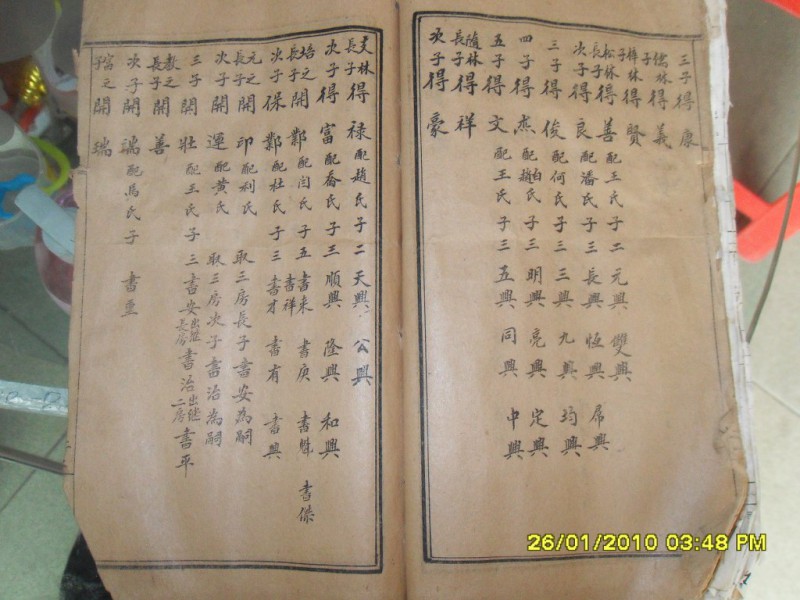 三子得康
儒林子得義
梓林子得賢
松林長子得善配王氏子二元興雙興
次子得良配潘氏子三長興恆興
三子得俊配何氏子三興九興均興
四子得杰配趙氏子三明興亮興定興
五子得文配王氏子三五興同興中興
隨林長子得祥
次子得豪
支林長子得祿配趙氏子二天興公興
次子得富配喬氏子三順興隆興和興
培之長子開鄰配閆氏子五書祥書來書庚書傑
次子保鄰配杜氏子三書才書有書興
元之長子開印配利氏取三房長子書安為嗣
次子開運配黃氏取三房次子書治為嗣
三子開壯配王氏子三書安出繼長房書治出繼二房書平
教之長子開善
次子開瑞配馬氏子書
富之子開瑞
26/01/2010 03:48 PM